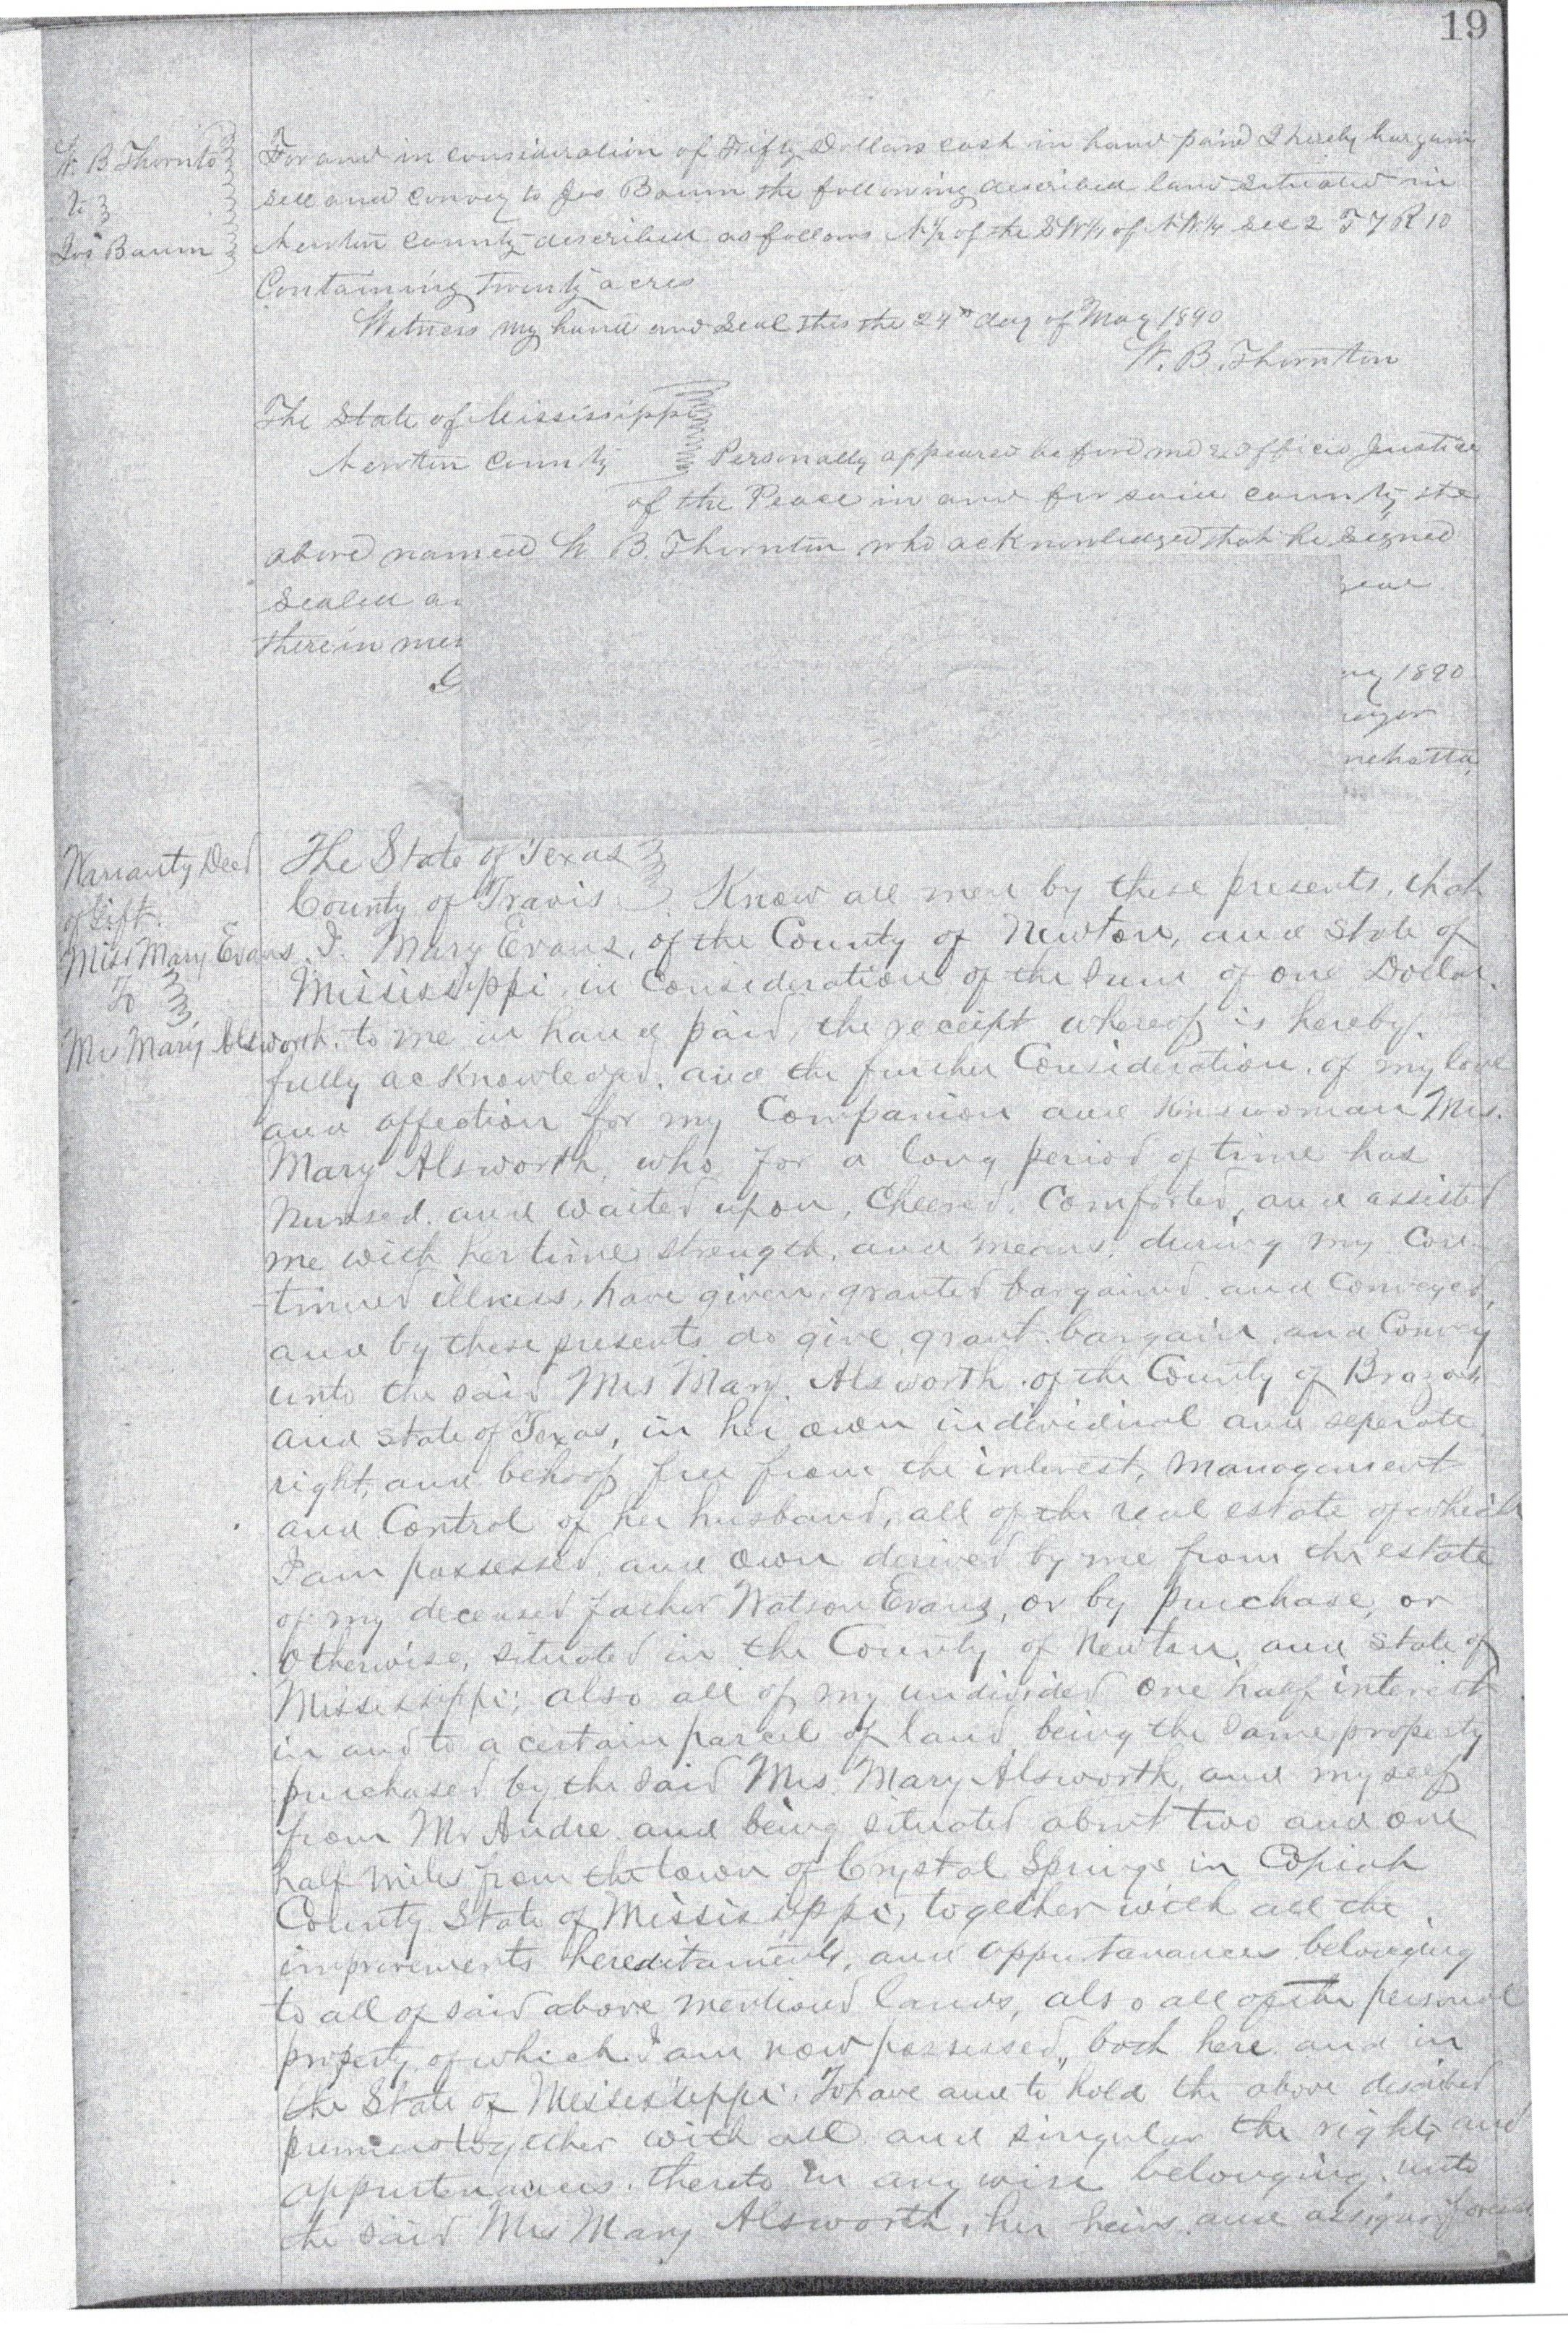 19
W. B Thornton
To
Jos Baum
For and in consideration of Fifty Dollars cash in hand paid I hereby bargain
sell and convey to Jos Baum the following described land situated in
Newton County described as follows N 1/2 of the SW 1/4 of NW 1/4 Sec 2 T 7 R 10
Containing twenty acres
Witness my hand and seal this the 24th day of May 1890
W. B. Thornton
The State of Mississippi
Newton County Personally appeared before me officio Justice
of the Peace in and for said county the
above named W B. Thornton who acknowledged that he signed
sealed
therein
1890
Warranty Deed
of Gift.
Miss Mary Evans
To
Mrs Mary Alsworth.
The State of Texas
County of Travis. Know all men by these presents, that
I. Mary Evans, of the County of Newton, and State of
Mississippi, in Consideration of the Sum of one Dollar.
to me in hand paid, the receipt whereof is hereby.
fully acknowledged. and the further Consideration. of my love
and affection for my Companion and Kinswoman Mrs.
Mary Alsworth, who for a long period of time has
Nursed. and waited upon, Cheered. Comforted, and assisted
me with her time strength, and means. during my Con-
-tinued illness, have given, granted bargained. and Conveyed,
and by these presents do give grant. bargain. and Convey
unto the said Mrs Mary. Alsworth. of the County of Brazos
and state of Texas, in her own individual and seperate
right, and behoof free from the interest, management
and Control of her husband, all of the real estate of which
I am possessed. and own derived by me from the estate
of my deceased father Watson Evans, or by purchase, or
Otherwise, situated in the County of Newton, and State of
Mississippi; also all of my undivided one half interest
in and to a certain parcel of land being the same property
purchased by the said Mrs. Mary Alsworth, and myself
from Mr Andre and being situated about two and one
half miles from the town of Crystal Springs in Copiah
County State of Mississippi, together with all the
improvements hereditaments, and appurtanances belonging
to all of said above mentioned lands, also all of the personal
property of which I am now possessed, both here and in
the State of Mississippi. To have and to hold the above described
premises together with all and singular the rights and
appurtenances. thereto in anywise belonging. unto
the said Mrs Mary Alsworth, her heirs. and assigns forever